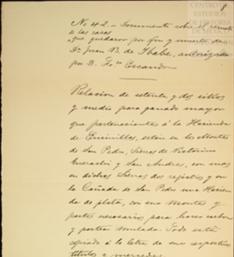 No 42 - Documento sobre el remate
de las casas
que quedaron por fin y muerte de
Dn. Juan B. de Ibabe, autorizado
por D. Franco Escandon.
Relacion de setenta y dos sitios
y medio para ganado mayor
que pertenecientes á la Hacienda
de Encinillas, estan en los Montes
de San Pedro, Sierras de Victorino
y San Andres, con mas
en dichas Sierras dos registros y en
la Cañada de San Pedro una Hacien
da de plata, con sus montes y
partes necesarios para hacer carbon
y postear mulada. Todo está
á la letra de sus respectivos
titulos y mercedes